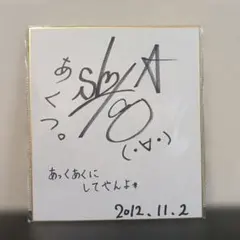 あくつ。
(・∀・)
あっくあくに
してやんよ
2012.11.2